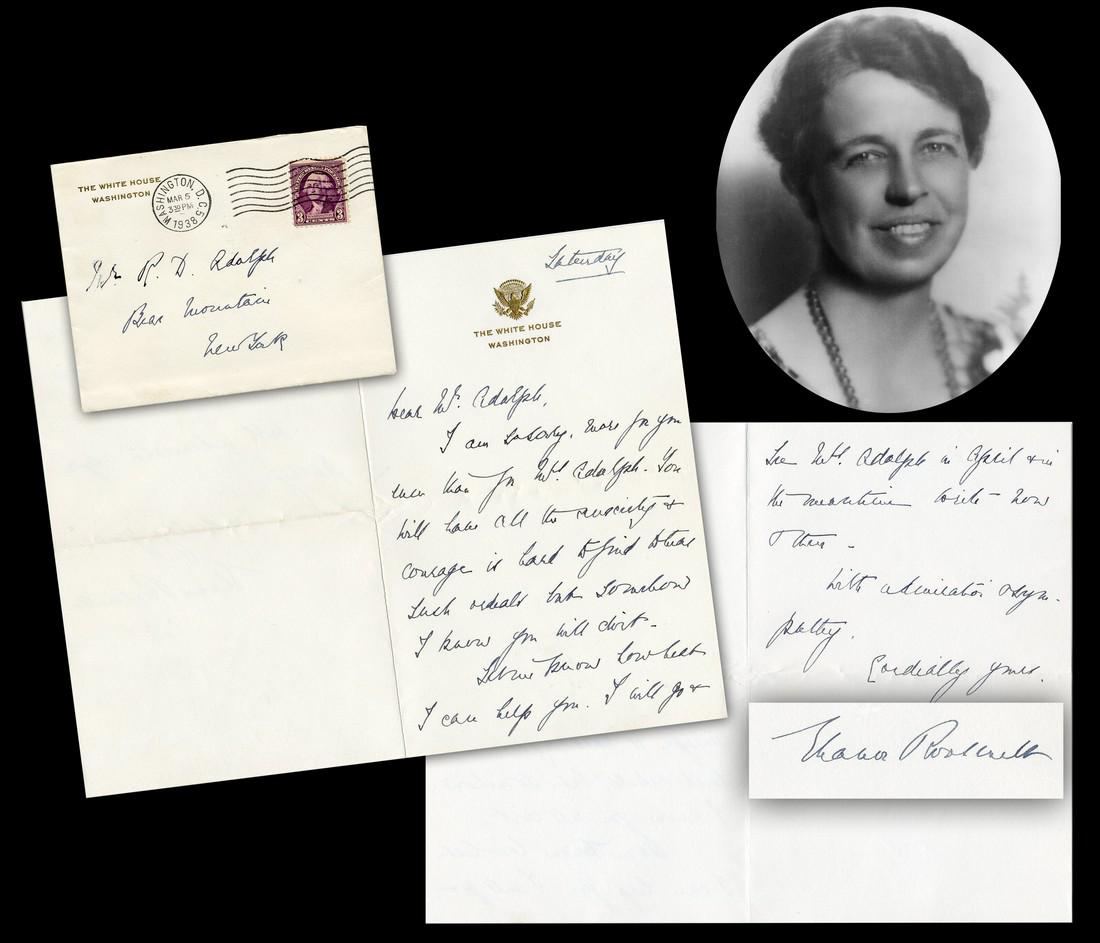 THE WHITE HOUSE
WASHINGTON
WASHINGTON, D.C. 5
MAR 5
3 30 PM
1938
3 CENTS 3
Mr. R. D. Adolph
Bear Mountain
New York
Saturday
THE WHITE HOUSE
WASHINGTON
Dear Mr. Adolph,
I am so sorry, more for you
even than for Mrs. Adolph. You
will have all the anxiety &
courage is hard to find to bear
such ordeals but somehow
I know you will do it -
Let me know how best
I can help you. I will go &
see Mrs. Adolph in April & in
the meantime write now
& then -
With admiration & sym-
pathy,
Cordially yours,
Eleanor Roosevelt